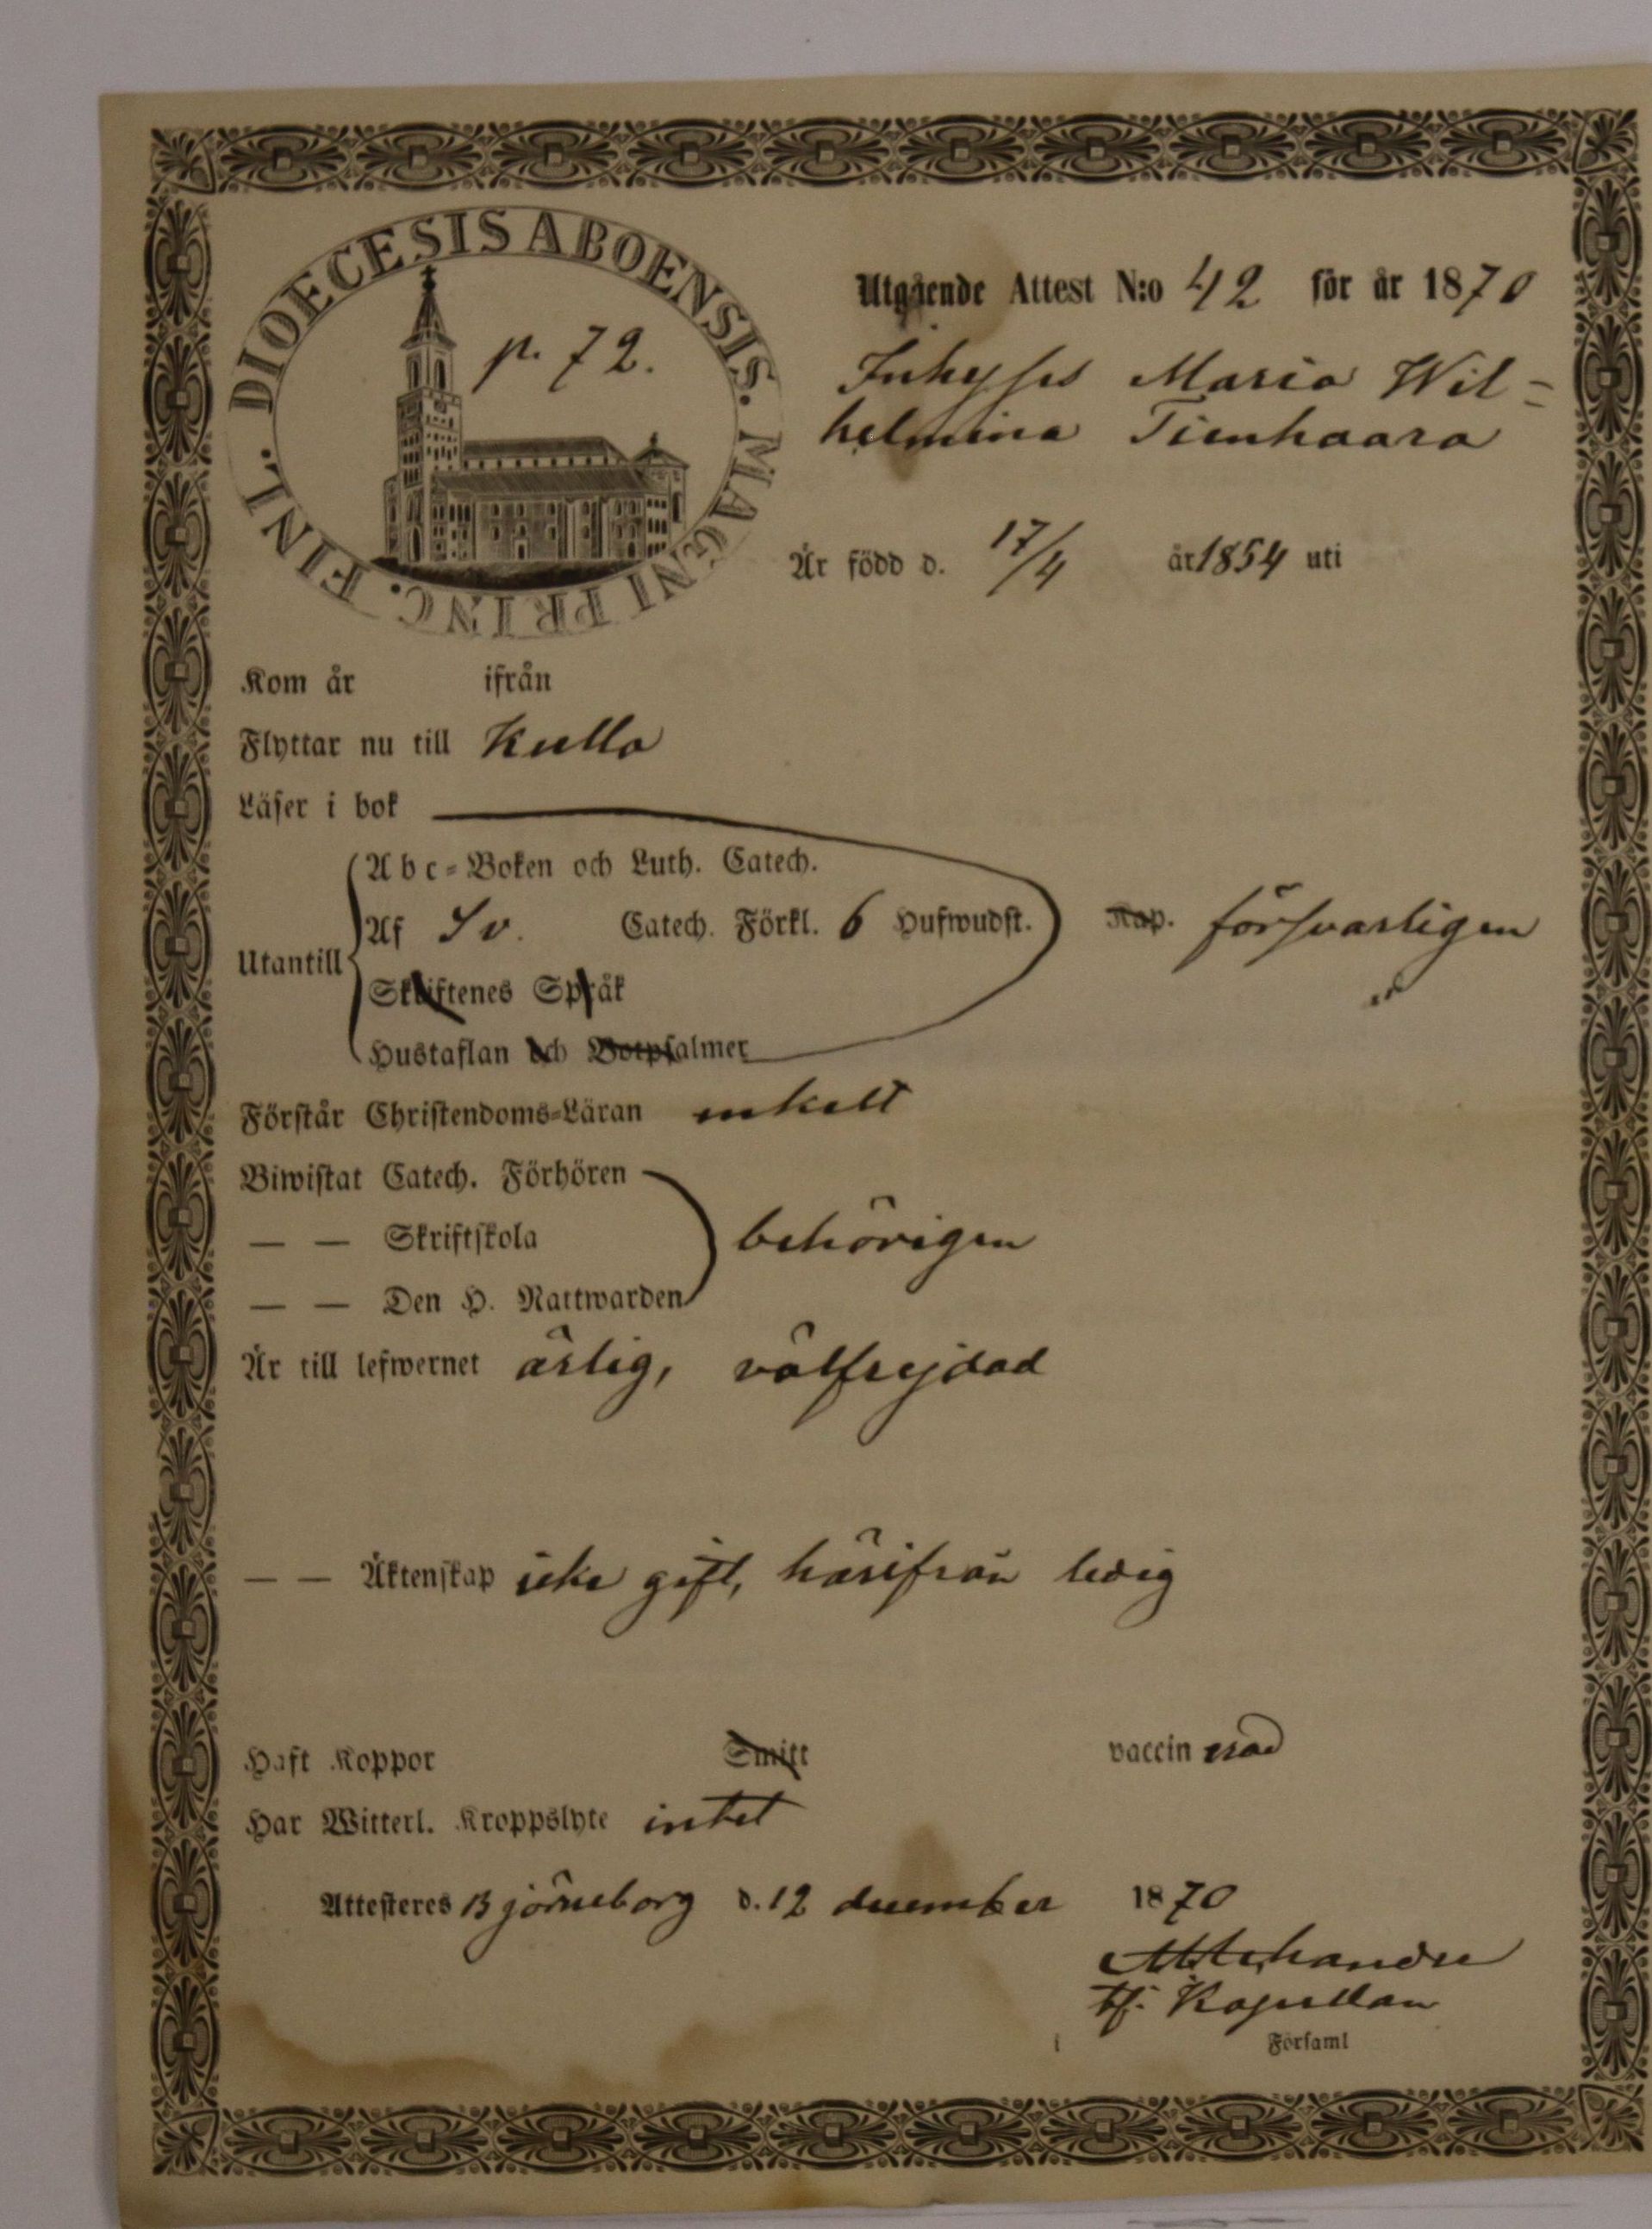 DIOECESIS ABOENSIS. MAGNI PRINC. FINL.
p. 72.
Utgående Attest N:o 42 för år 1870
Inhyses Maria Wil=
helmina Tienhaara
Är född d. 17/4 år 1854 uti
Kom år ifrån
Flyttar nu till Kulla
Läser i bok
Abc=Boken och Luth. Catech.
Utantill Af Sv. Catech. Förkl. 6 Hufwudst. Kap. försvarligen
Skriftenes Språk
Hustaflan och Botpsalmer
Förstår Christendoms=Läran enkelt
Biwistat Catech. Förhören
— — Skriftskola behörigen
— — Den H. Nattwarden
Är till lefwernet ärlig, välfrejdad
— — Äktenskap icke gift, härifrån ledig
Haft Koppor Smitt vaccinerad
Har Witterl. Kroppslyte intet
Attesteres Björneborg d. 12 december 1870
tf. Kapellan
i Församl